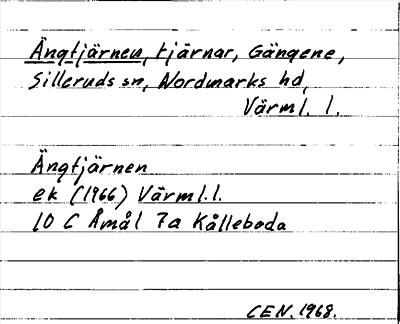 Ängtjärnen, tjärnar, Gängene,
Silleruds sn, Nordmarks hd,
Värml. l.
Ängtjärnen
ek (1966) Värml.l.
10 C Åmål 7a Kålleboda
CEN. 1968.